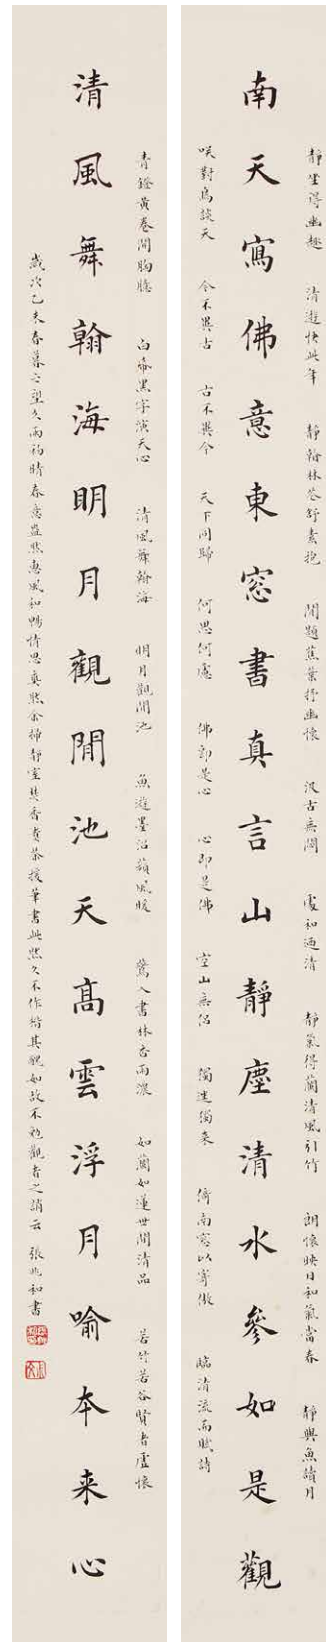 靜坐得幽趣 清遊快此年 靜翰林花舒素抱 閒題蕉葉抒幽懷 汲古無閒 處和迺清 靜氣得蘭清風引竹 朗懷映日和氣當春 靜與魚讀月
南天寫佛意東窓書真言山靜塵清水參如是觀
咲對鳥談天 今不異古 古不異今 天下同歸 何思何慮 佛即是心 心即是佛 空山無侶 獨獨來 倚南窓以寄傲 臨清流而賦詩
青鐙黃卷開胸臆 白帋黑字演天心 清風舞翰海 明月觀閒池 魚遊墨沼蘋風暖 鶯入書林杏雨濃 如蘭如蓮世間清品 若竹若谷賢者虛懷
清風舞翰海明月觀閒池天髙雲浮月喻本来心
歲次乙未春暮之望久雨初晴春意盎然惠風和暢情思奐然余掃靜室焚香煮茶援筆書此然久不作楷其醜如故不勉觀者之誚云 張兆和書